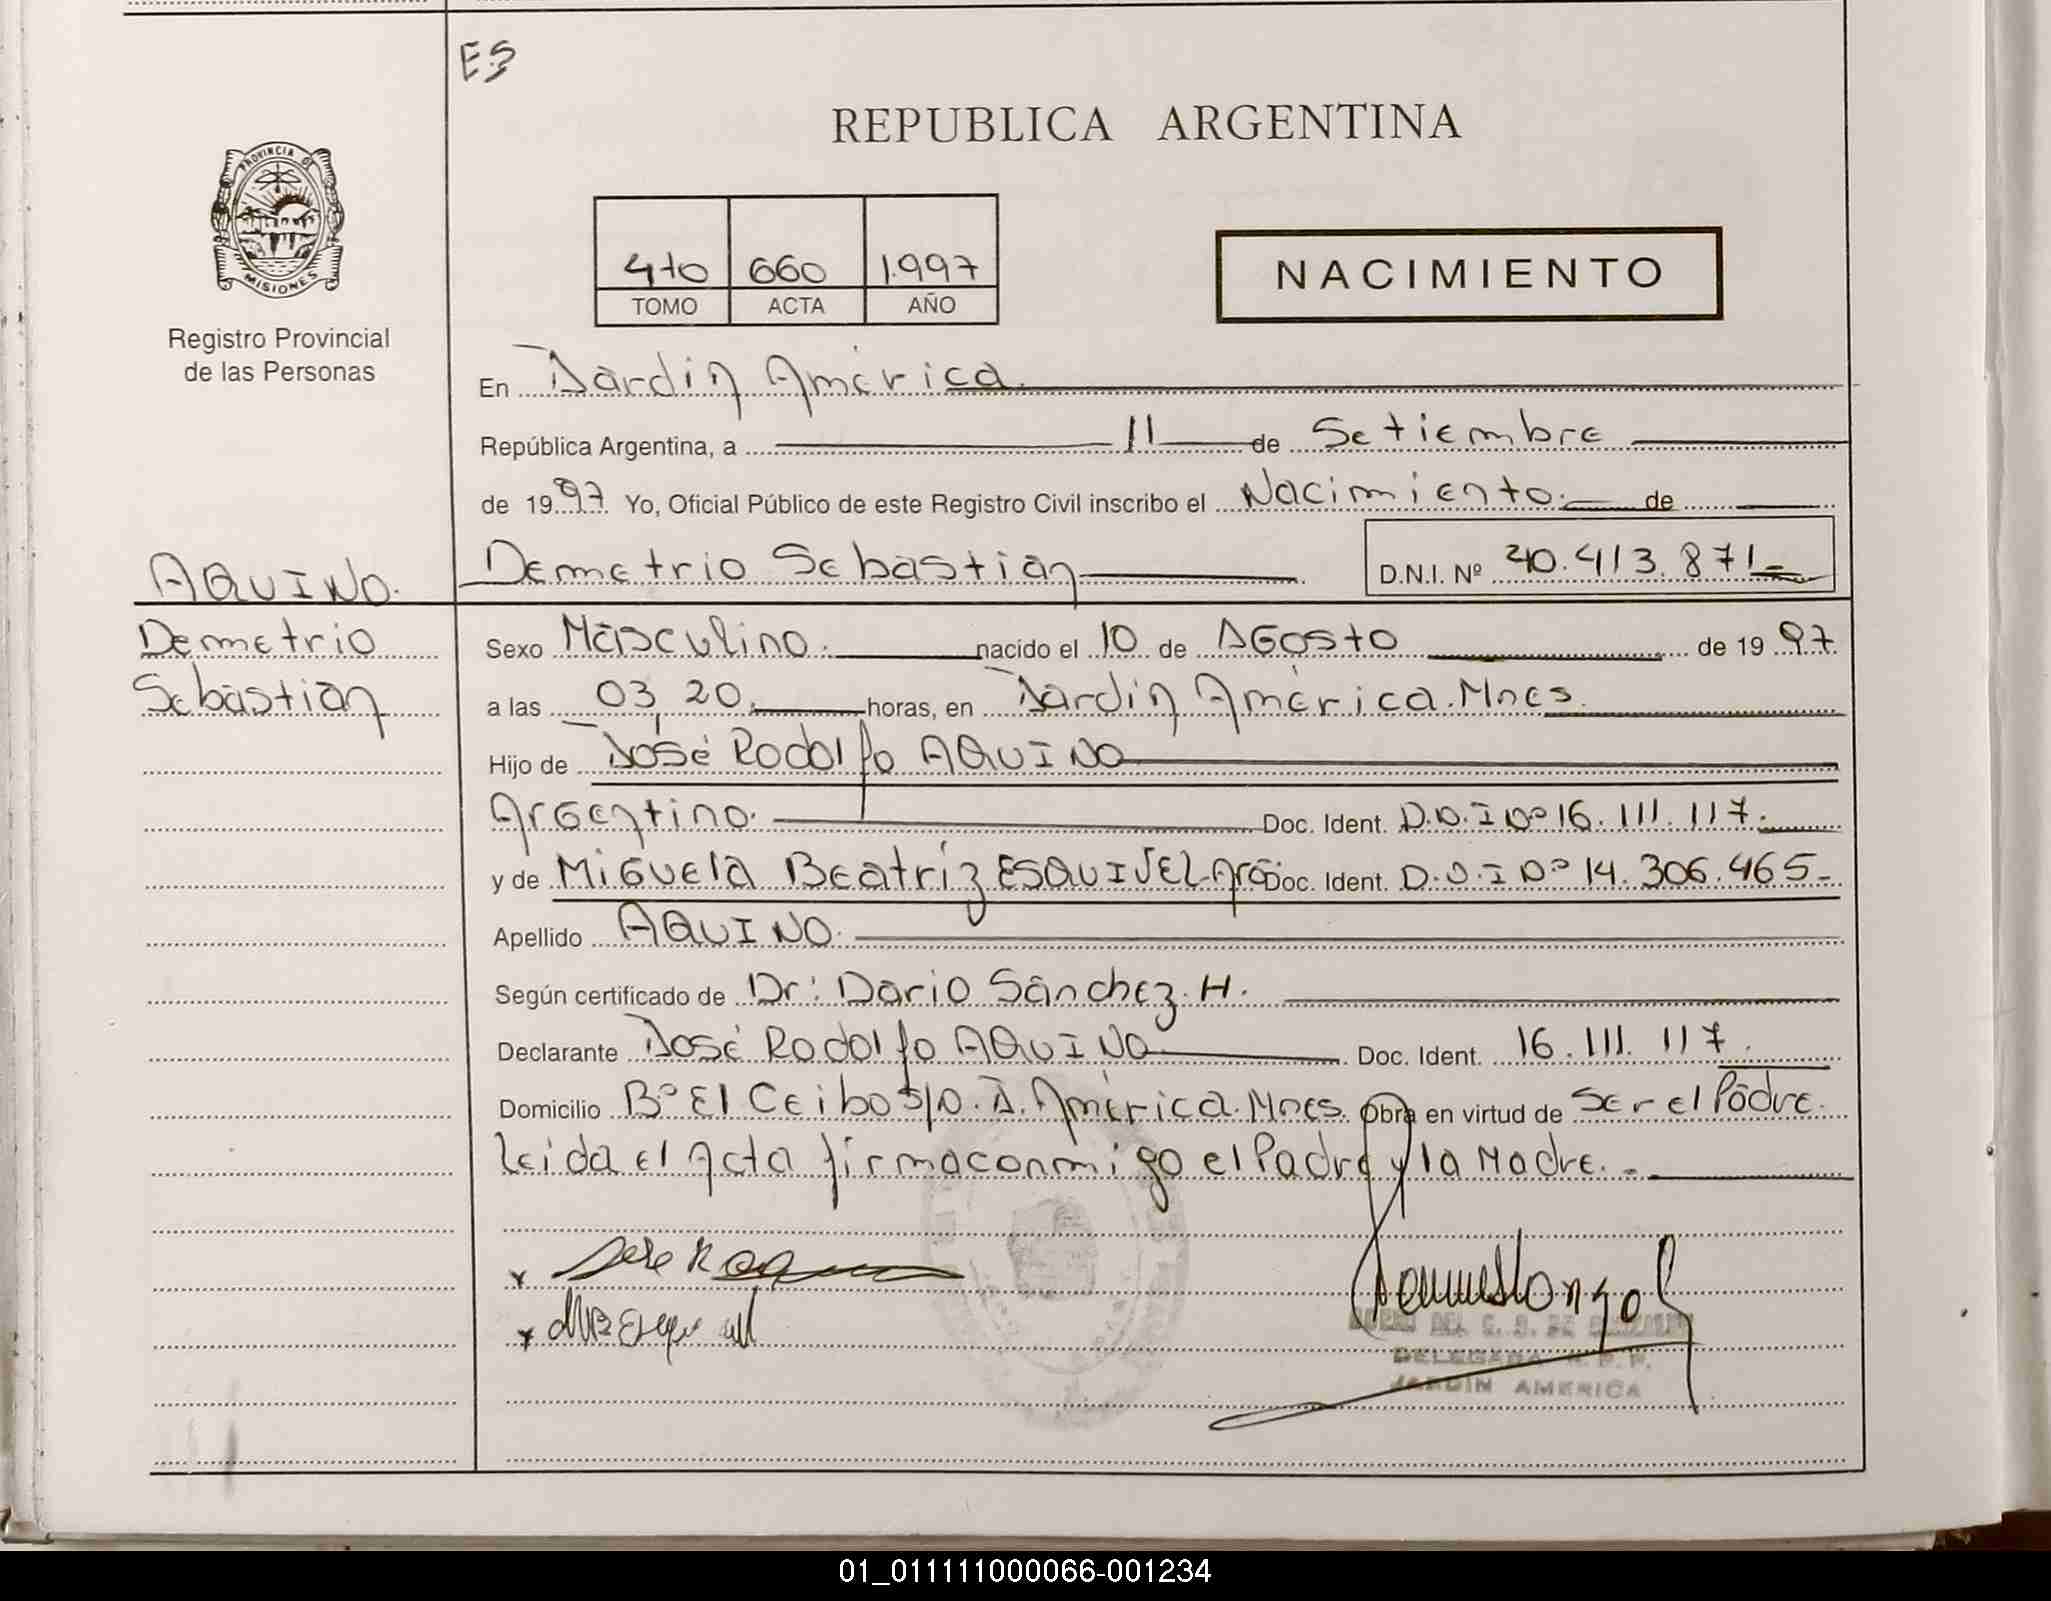 ES
REPUBLICA ARGENTINA
PROVINCIA DE
MISIONES
Registro Provincial
de las Personas
4to 660 1.997
TOMO ACTA AÑO
NACIMIENTO
En Jardin América.
República Argentina, a 11 de Setiembre
de 1997 Yo, Oficial Público de este Registro Civil inscribo el Nacimiento. de
AQUINO.
Demetrio Sebastian D.N.I. Nº 40.413.871_
Demetrio
Sebastian
Sexo Masculino. nacido el 10 de AGosto de 1997
a las 03,20. horas, en Jardin América. Mnes.
Hijo de José Rodolfo AQUINO
Argentino. Doc. Ident. D.N.I Nº 16.111.117.
y de Miguela Beatríz ESQUIVEL. Arg. Doc. Ident. D.N.I Nº 14.306.465_
Apellido AQUINO.
Según certificado de Dr: Dario Sánchez. H.
Declarante José Rodolfo AQUINO Doc. Ident. 16.111.117.
Domicilio Bº El Ceibo S/N. J. América. Mnes. Obra en virtud de Ser el Padre.
Leida el Acta firma conmigo el Padre y la Madre._
x José R Aq
x MB Esquivel
DELEGADA R. P. P.
JARDIN AMERICA
01_011111000066-001234